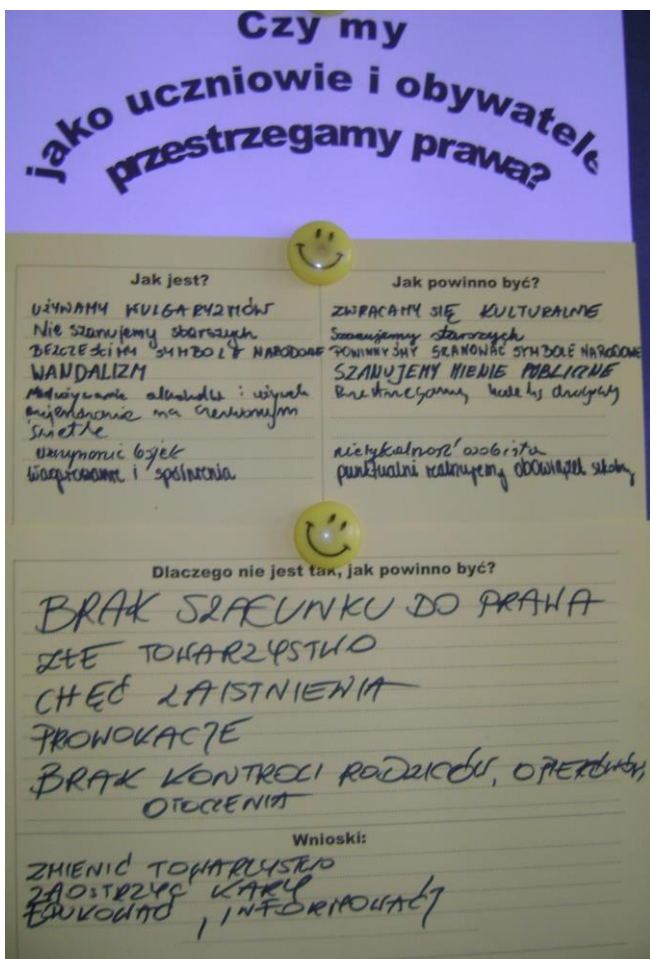 Czy my
jako uczniowie i obywatele
przestrzegamy prawa?
Jak jest?
UŻYWAMY WULGARYZMÓW
Nie szanujemy starszych
BEZCZEŚCIMY SYMBOLE NARODOWE
WANDALIZM
Nadużywanie alkoholu i używek
na czerwonym
świetle
bójek
Wagarowanie i spóźnienia
Jak powinno być?
ZWRACAMY SIĘ KULTURALNIE
Szanujemy starszych
POWINNYŚMY SZANOWAĆ SYMBOLE NARODOWE
SZANUJEMY MIENIE PUBLICZNE
Przestrzegamy kodeks drogowy
nietykalność osobista
punktualni realizujemy obowiązek szkolny
Dlaczego nie jest tak, jak powinno być?
BRAK SZACUNKU DO PRAWA
ZŁE TOWARZYSTWO
CHĘĆ ZAISTNIENIA
PROWOKACJE
BRAK KONTROLI RODZICÓW, OPIEKUNÓW,
OTOCZENIA
Wnioski:
ZMIENIĆ TOWARZYSTWO
ZAOSTRZYĆ KARY
EDUKOWAĆ, INFORMOWAĆ